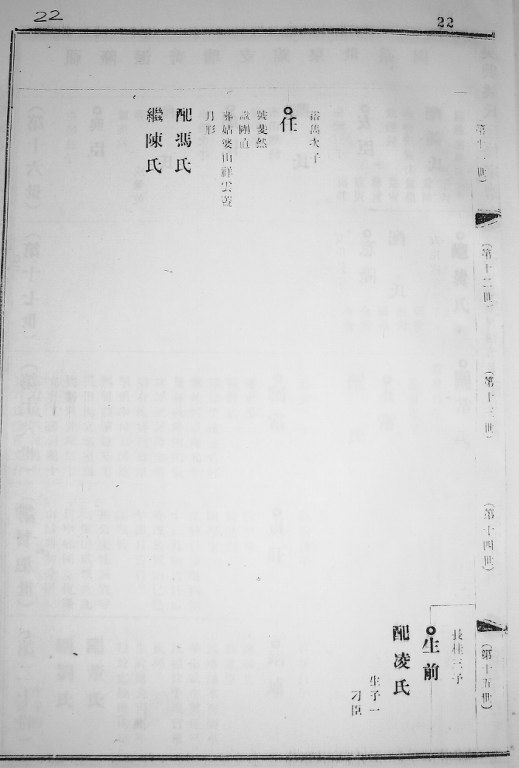 22
22
(第十一世)
次子
任
號斐然
諡剛直
葬姑婆山祥雲蓋
月形
配馮氏
繼陳氏
(第十二世)
(第十三世)
(第十四世)
(第十五世)
長桂三子
生前
配凌氏
生子一
才臣